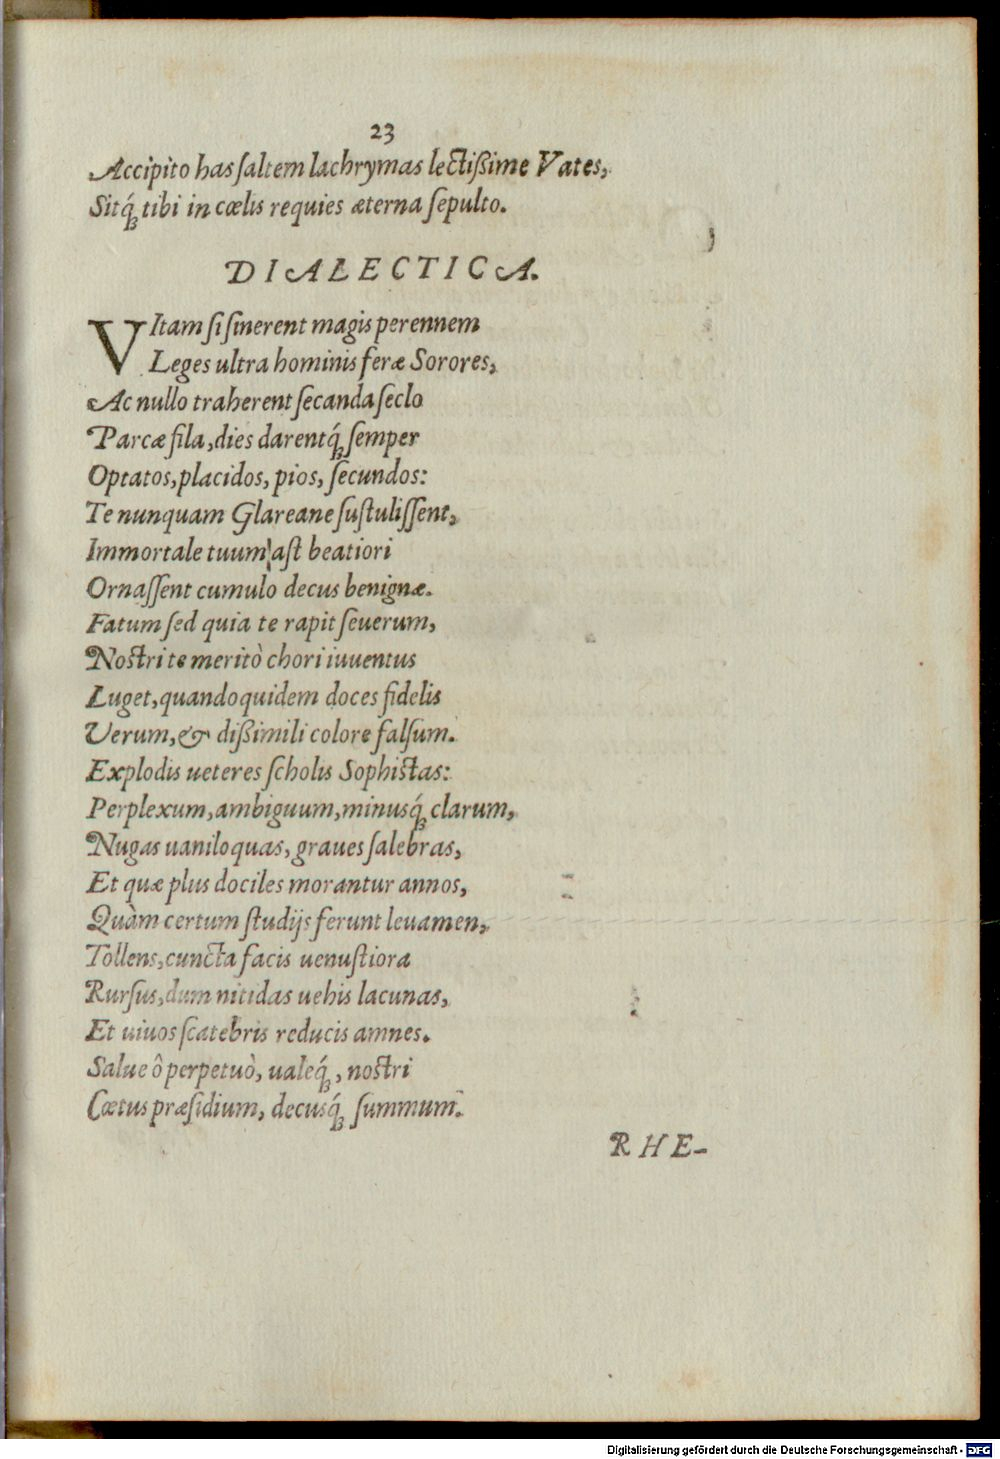 23
Accipito has saltem lachrymas lectißime Vates,
Sitq́ꝫ tibi in cœlis requies æterna sepulto.
DIALECTICA.
VItam si sinerent magis perennem
Leges ultra hominis feræ Sorores,
Ac nullo traherent secanda seclo
Parcæ fila, dies darentq́ꝫ semper
Optatos, placidos, pios, secundos:
Te nunquam Glareane sustulissent,
Immortale tuum, ast beatiori
Ornassent cumulo decus benignæ.
Fatum sed quia te rapit seuerum,
Nostri te meritò chori iuuentus
Luget, quandoquidem doces fidelis
Verum, & dißimili colore falsum.
Explodis ueteres scholis Sophistas:
Perplexum, ambiguum, minusq́ꝫ clarum,
Nugas uaniloquas, graues salebras,
Et quæ plus dociles morantur annos,
Quàm certum studijs ferunt leuamen,
Tollens, cuncta facis uenustiora
Rursus, dum nitidas uehis lacunas,
Et uiuos scatebris reducis amnes.
Salue ô perpetuò, ualeq́ꝫ, nostri
Cœtus præsidium, decusq́ꝫ summum.
RHE-
Digitalisierung gefördert durch die Deutsche Forschungsgemeinschaft - DFG